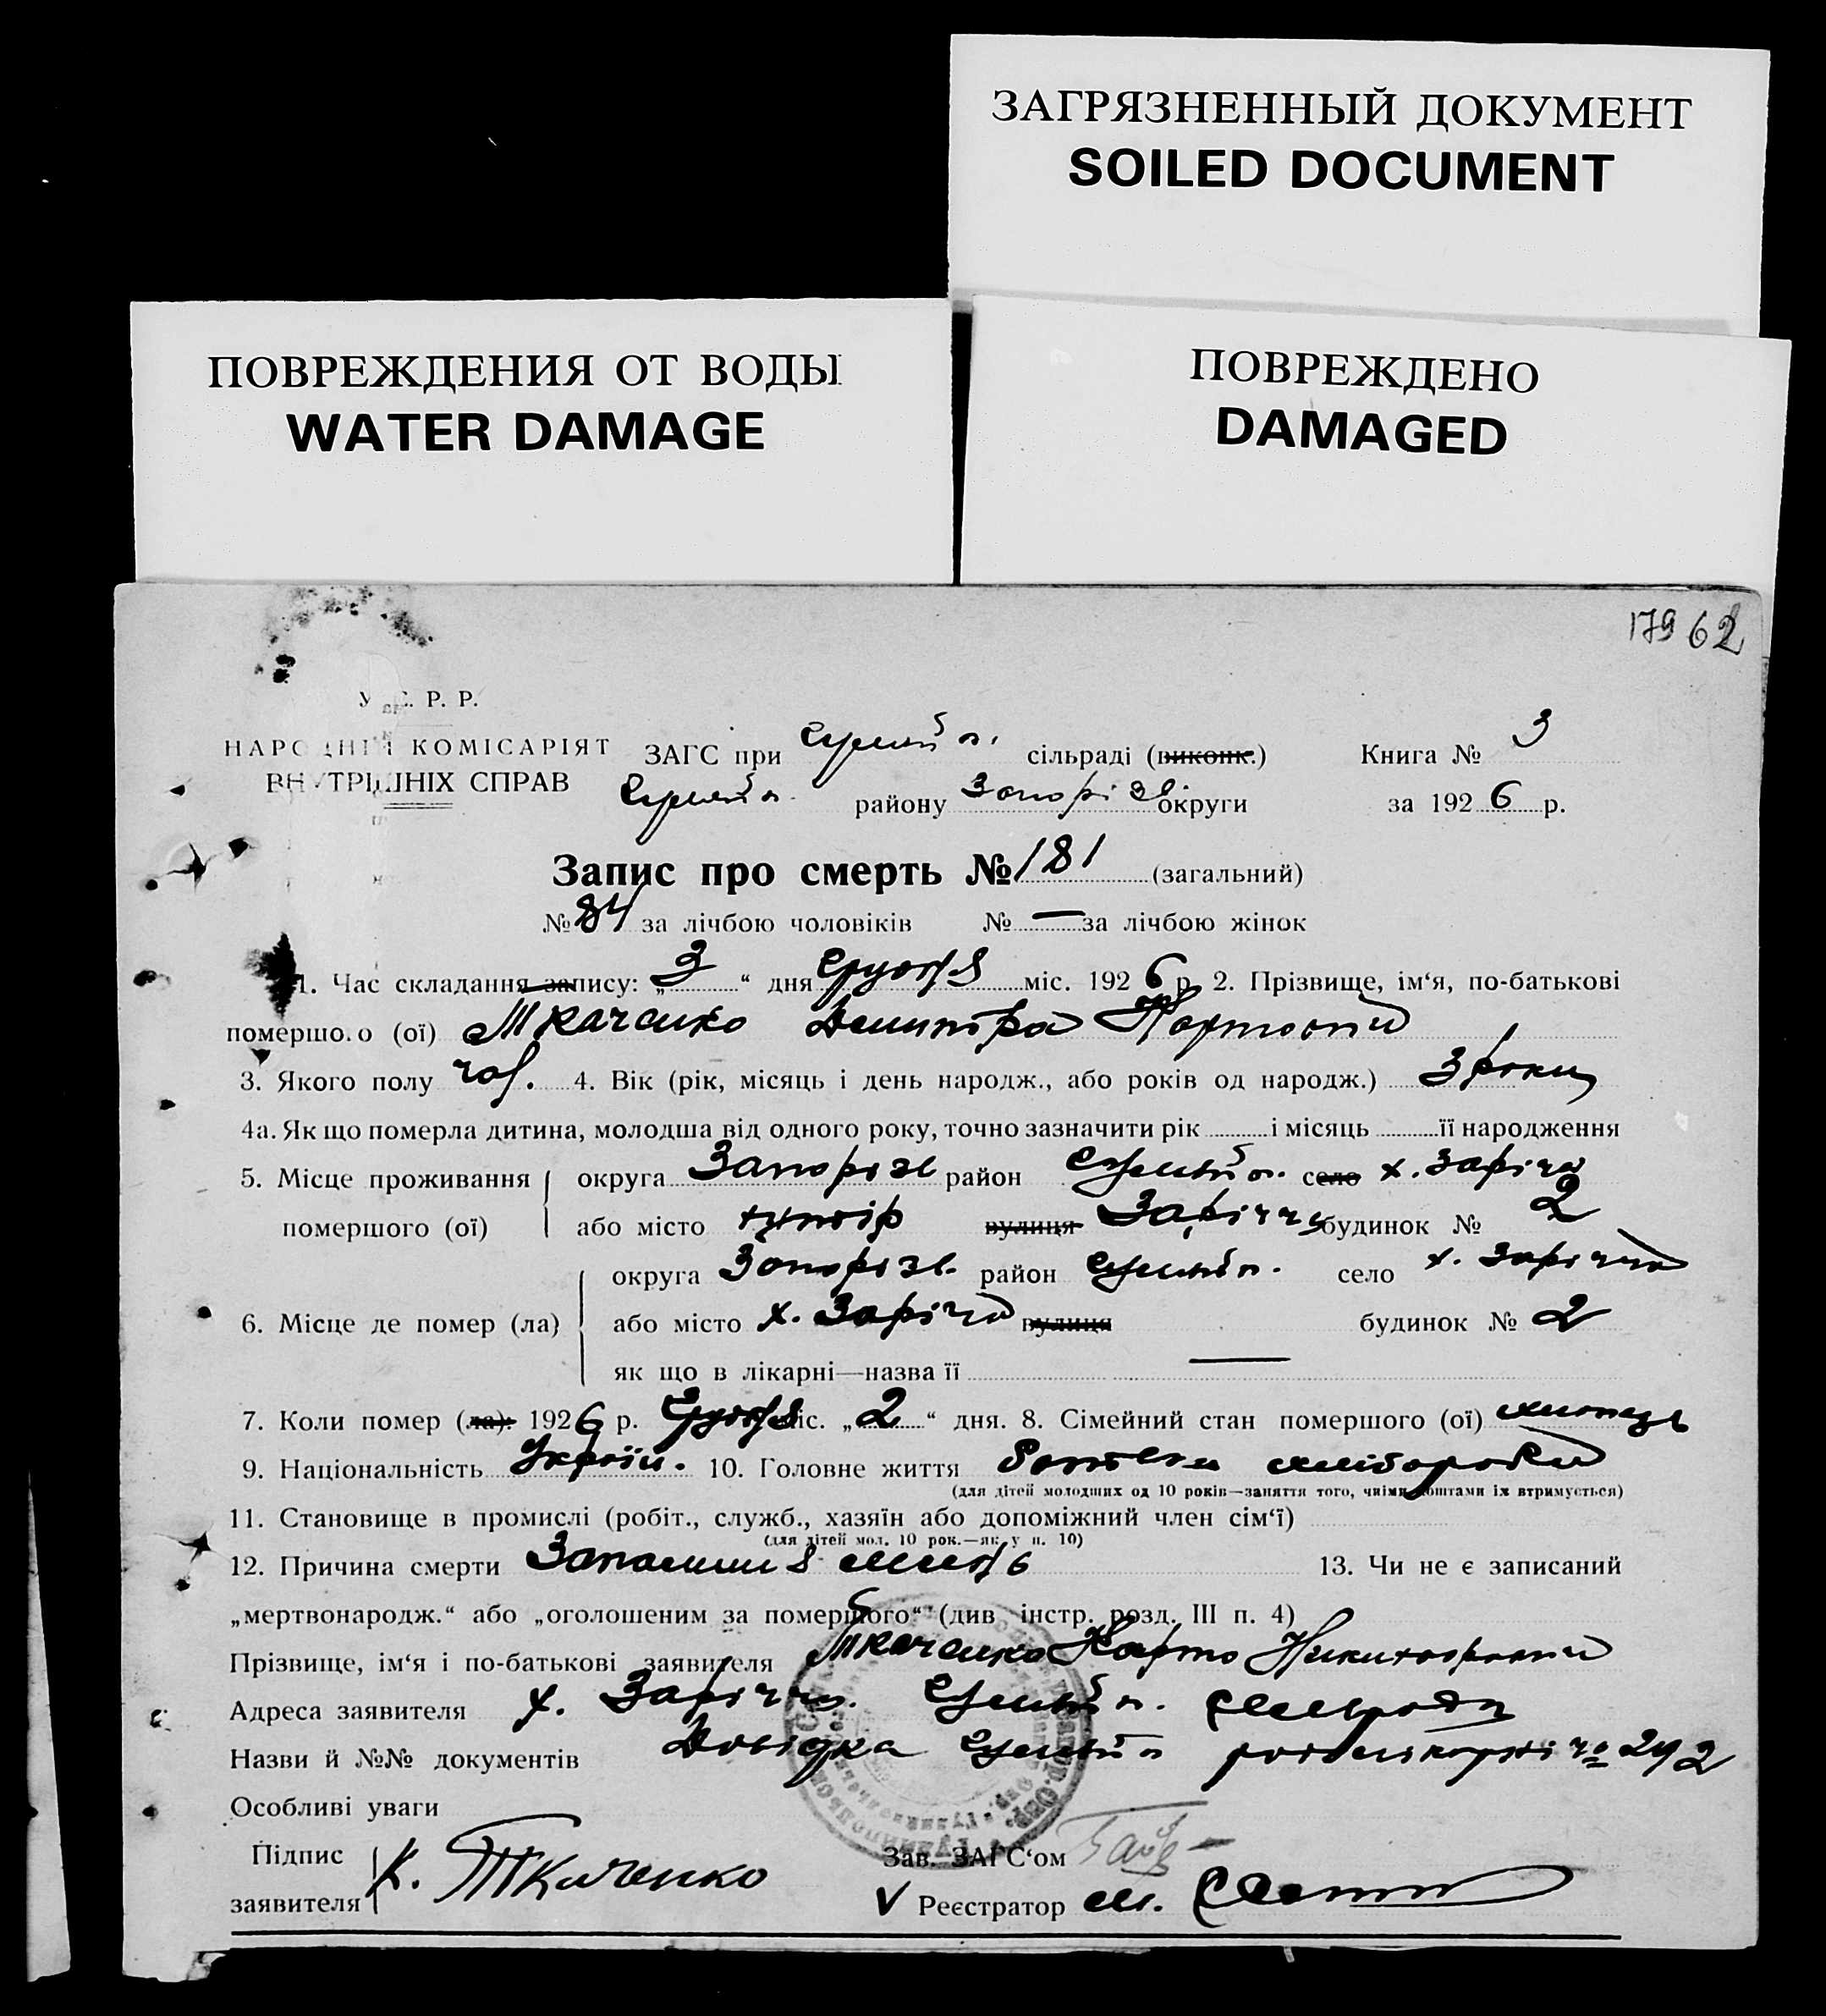 ЗАГРЯЗНЕННЫЙ ДОКУМЕНТ
SOILED DOCUMENT
ПОВРЕЖДЕНИЯ ОТ ВОДЫ
WATER DAMAGE
ПОВРЕЖДЕНО
DAMAGED
179 62
У. С. Р. Р.
НАРОДНІЙ КОМІСАРІЯТ
ВНУТРІШНІХ СПРАВ
ЗАГС при сільраді (виконк.) Книга № 3
району Запорізь округи за 1926 р.
Запис про смерть № 181 (загальний)
№ 84 за лічбою чоловіків № — за лічбою жінок
1. Час складання запису: „3“ дня Грудня міс. 1926 р. 2. Прізвище, ім‘я, по-батькові
помершо.о (ої) Ткаченко Демитра
3. Якого полу чол. 4. Вік (рік, місяць і день народж., або років од народж.) 3 роки
4а. Як що померла дитина, молодша від одного року, точно зазначити рік і місяць її народження
5. Місце проживання округа Запорізь район село х. Заріччя
помершого (ої) або місто хутір вулиця Заріччя будинок № 2
округа Запорізь. район село х. Заріччя
6. Місце де помер (ла) або місто х. Заріччя вулиця будинок № 2
як що в лікарні—назва її —
7. Коли помер (ла): 1926 р. Грудня міс. „2“ дня. 8. Сімейний стан помершого (ої) хлопець
9. Національність Україн. 10. Головне життя хлібороби
(для дітей молодших од 10 років—заняття того, чиїми коштами їх втримується)
11. Становище в промислі (робіт., служб., хазяїн або допоміжний член сім‘ї)
(для дітей мол. 10 рок.—як у п. 10)
12. Причина смерти Запалення 13. Чи не є записаний
„мертвонародж.“ або „оголошеним за помершого“ (див інстр. розд. III п. 4)
Прізвище, ім‘я і по-батькові заявителя Ткаченко Карпо Никифорович
Адреса заявителя х. Заріччя. сільради
Назви й №№ документів Довідка № 292
Особливі уваги
Підпис заявителя К. Ткаченко
Зав. ЗАГС‘ом
V Реєстратор